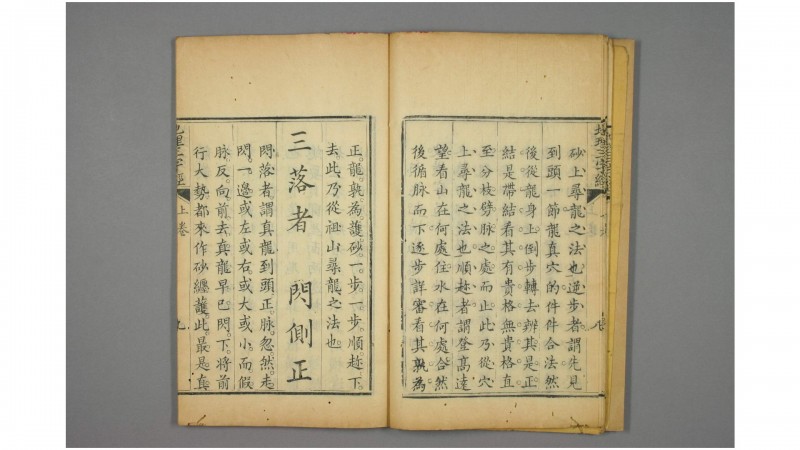 砂上尋龍之法也逆步者謂先見
到頭一節龍真穴的件件合法然
後從龍身上倒步轉去辨其是正
結是帶結看其有貴格無貴格直
至分枝劈脉之處而止此乃從穴
上尋龍之法也順趂者謂登高遠
望看山在何處住水在何處合然
後循脉而下逐步詳審看其孰為
正龍孰為護砂一步一步順趂下
去此乃從祖山尋龍之法也
三落者 閃側正
閃落者謂真龍到頭正脉忽然走
閃一邊或左或右或大或小而假
脉反向前去真龍早巳閃下將前
行大勢都來作砂纏護此最是真
地理三字經 上卷 九